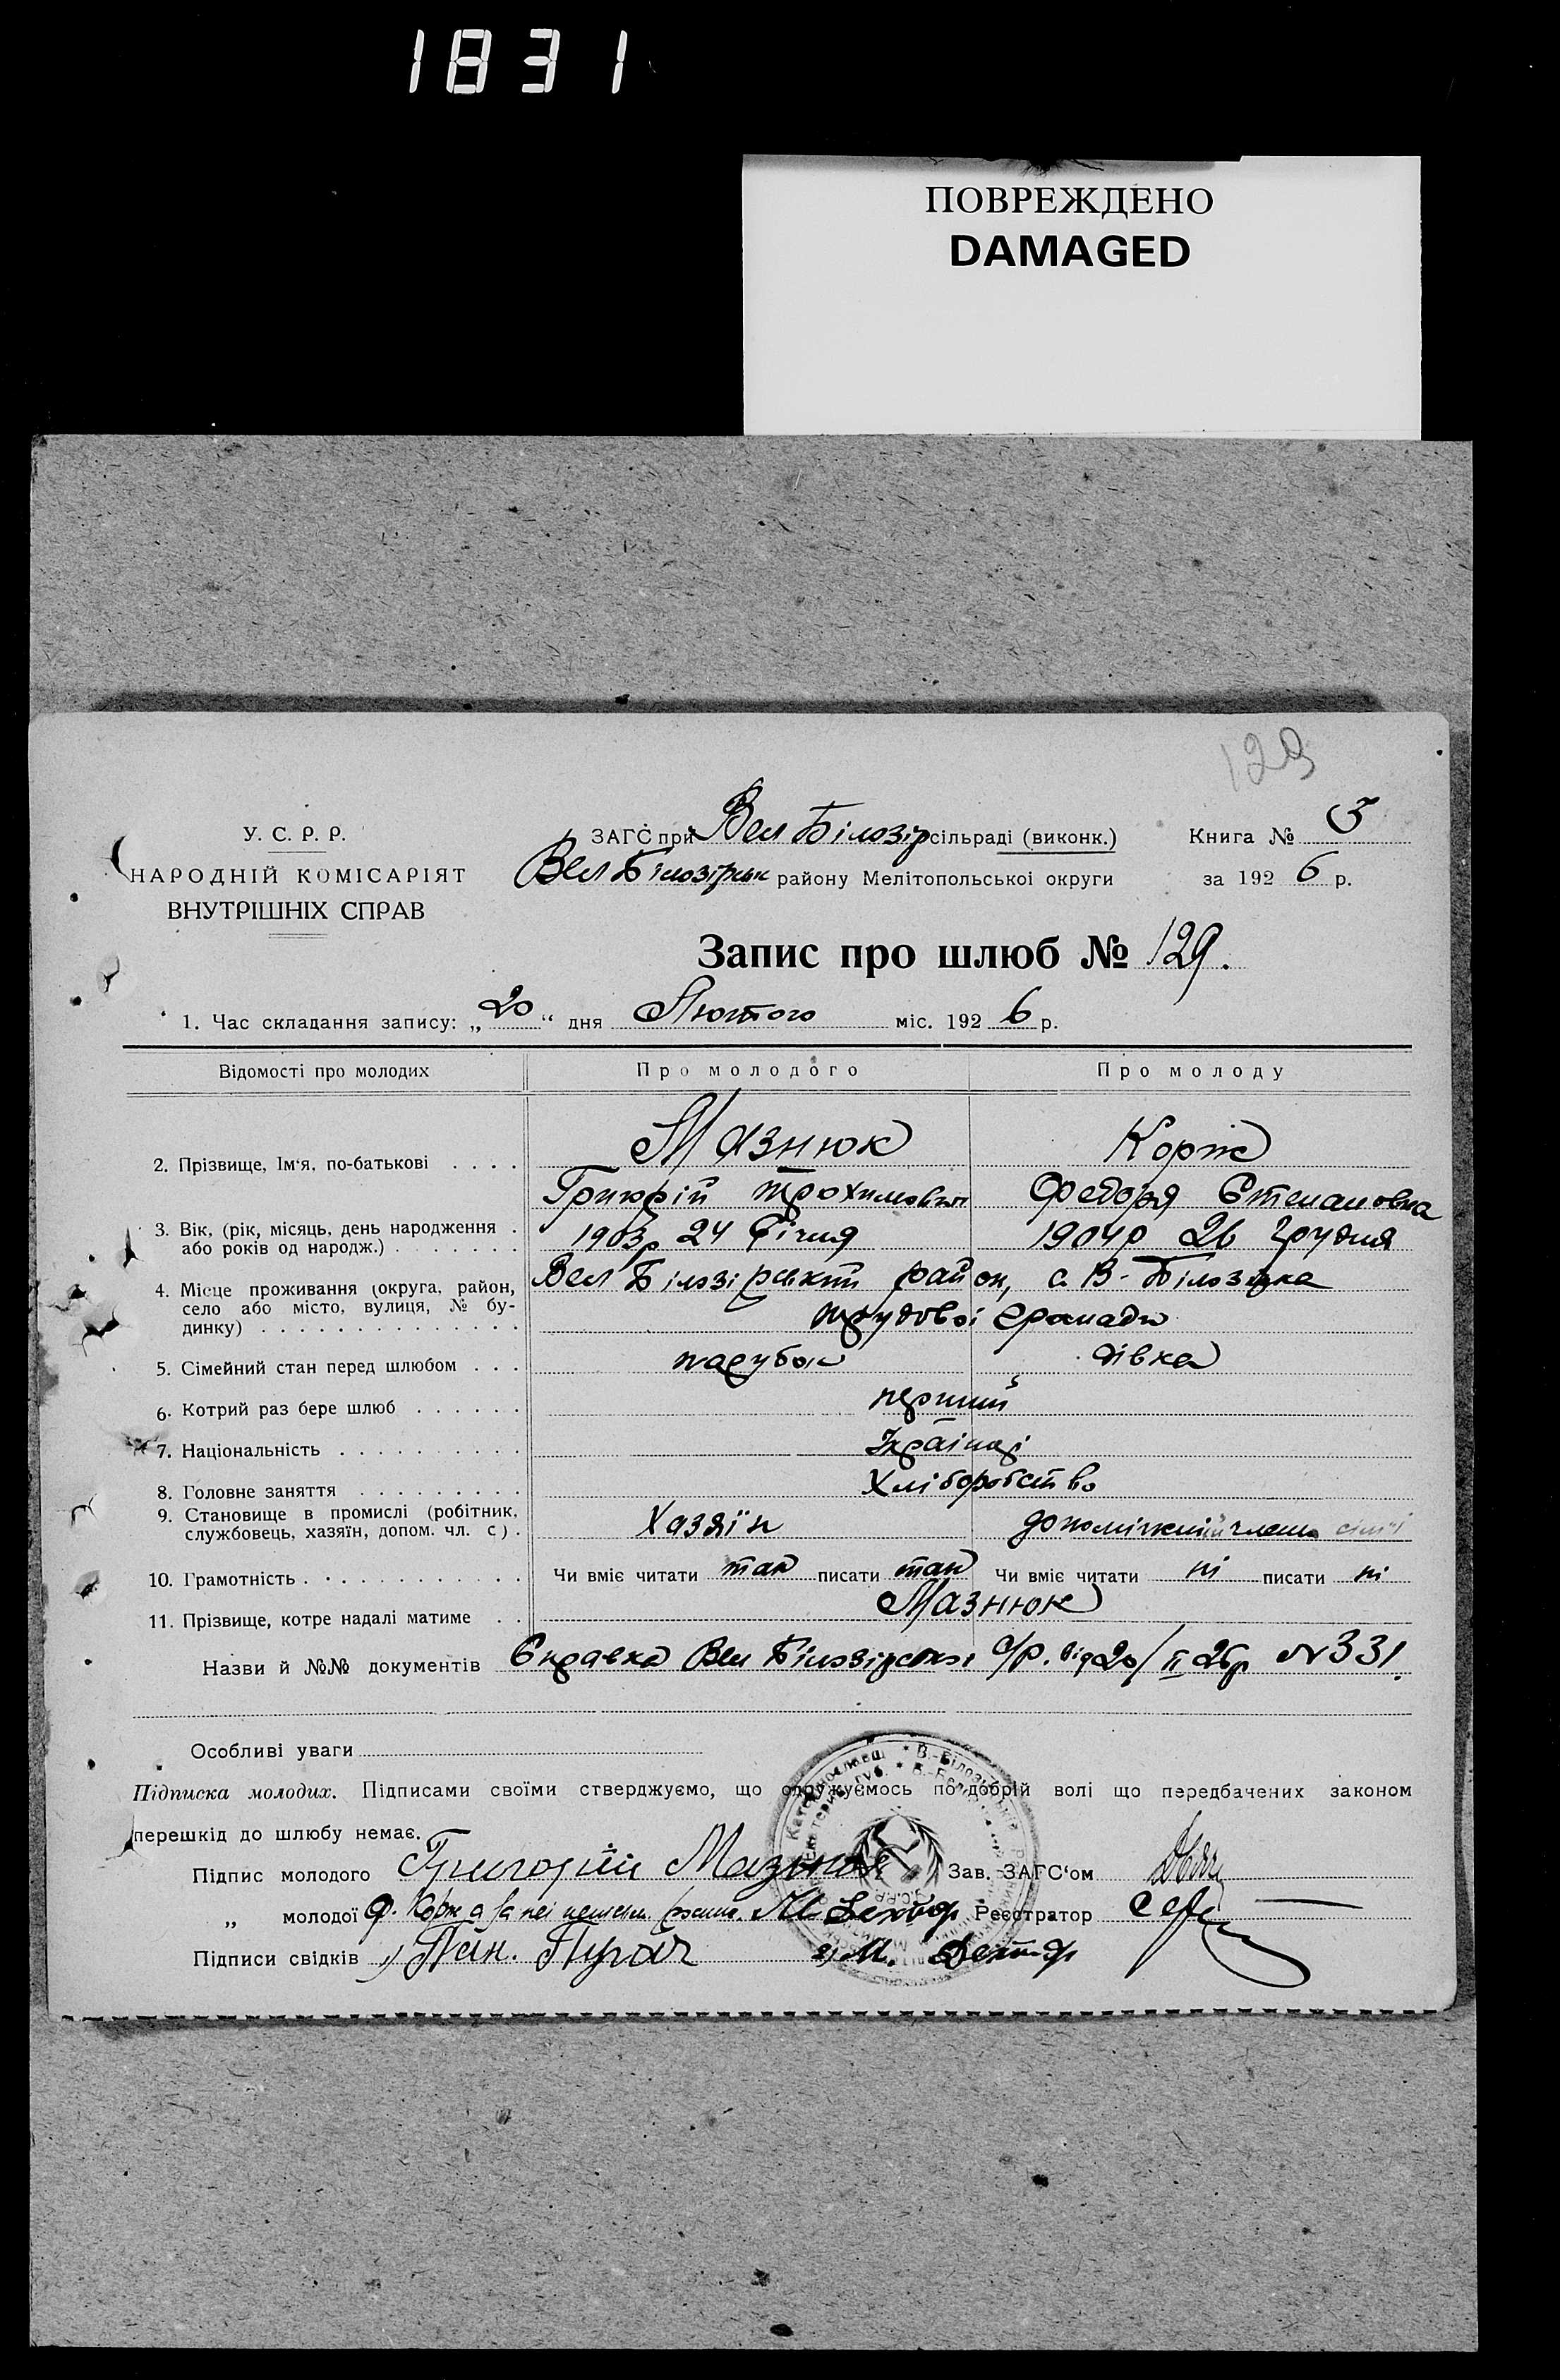 1831
ПОВРЕЖДЕНО
DAMAGED
129
У. С. Р. Р.
НАРОДНІЙ КОМІСАРІЯТ
ВНУТРІШНІХ СПРАВ
ЗАГС при Вел Білозір сільраді (виконк.)
Вел Білозірськ району Мелітопольської округи
Книга № 3
за 1926 р.
Запис про шлюб № 129.
1. Час складання запису: „20“ дня Лютого міс. 1926 р.
Відомості про молодих Про молодого Про молоду
2. Прізвище, Ім‘я, по-батькові . . . . Мазнюк Корж
Григорій Трохимович Федора Степановна
3. Вік, (рік, місяць, день народження . 1903р 24 Січня 1904р 26 Грудня
або років од народж.) . . . . . . .
4. Місце проживання (округа, район, Вел Білозірський район, с. В-Білозірка
село або місто, вулиця, № бу-
динку) . . . . . . . . . . . . . . трудової громади
5. Сімейний стан перед шлюбом . . . парубок дівка
6. Котрий раз бере шлюб . . . . . . перший
7. Національність . . . . . . . . . . Українці
8. Головне заняття . . . . . . . . . Хліборобство
9. Становище в промислі (робітник, Хазяїн допоміжний член сім'ї
службовець, хазяїн, допом. чл. с.) .
10. Грамотність . . . . . . . . . . . Чи вміє читати так писати так Чи вміє читати ні писати ні
11. Прізвище, котре надалі матиме . . Мазнюк
Назви й №№ документів Справка Вел Білозірської с/р. від 20/II 26р № 331.
Особливі уваги
Підписка молодих. Підписами своїми стверджуємо, що одружуємось по добрій волі що передбачених законом
перешкід до шлюбу немає.
Підпис молодого Григорій Мазнюк Зав. ЗАГС‘ом
„ молодої Ф. Корж а за неї М. Реєстратор
Підписи свідків 1) Пан. Пугач 2) М.